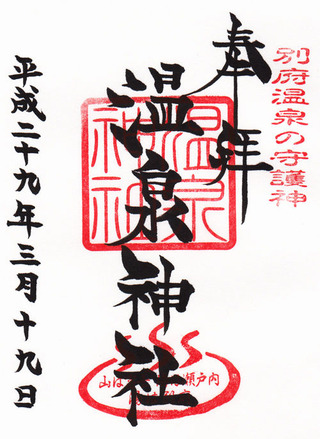 別府温泉の守護神
奉拝
温泉神社
平成二十九年三月十九日
温泉神社
瀬戸内